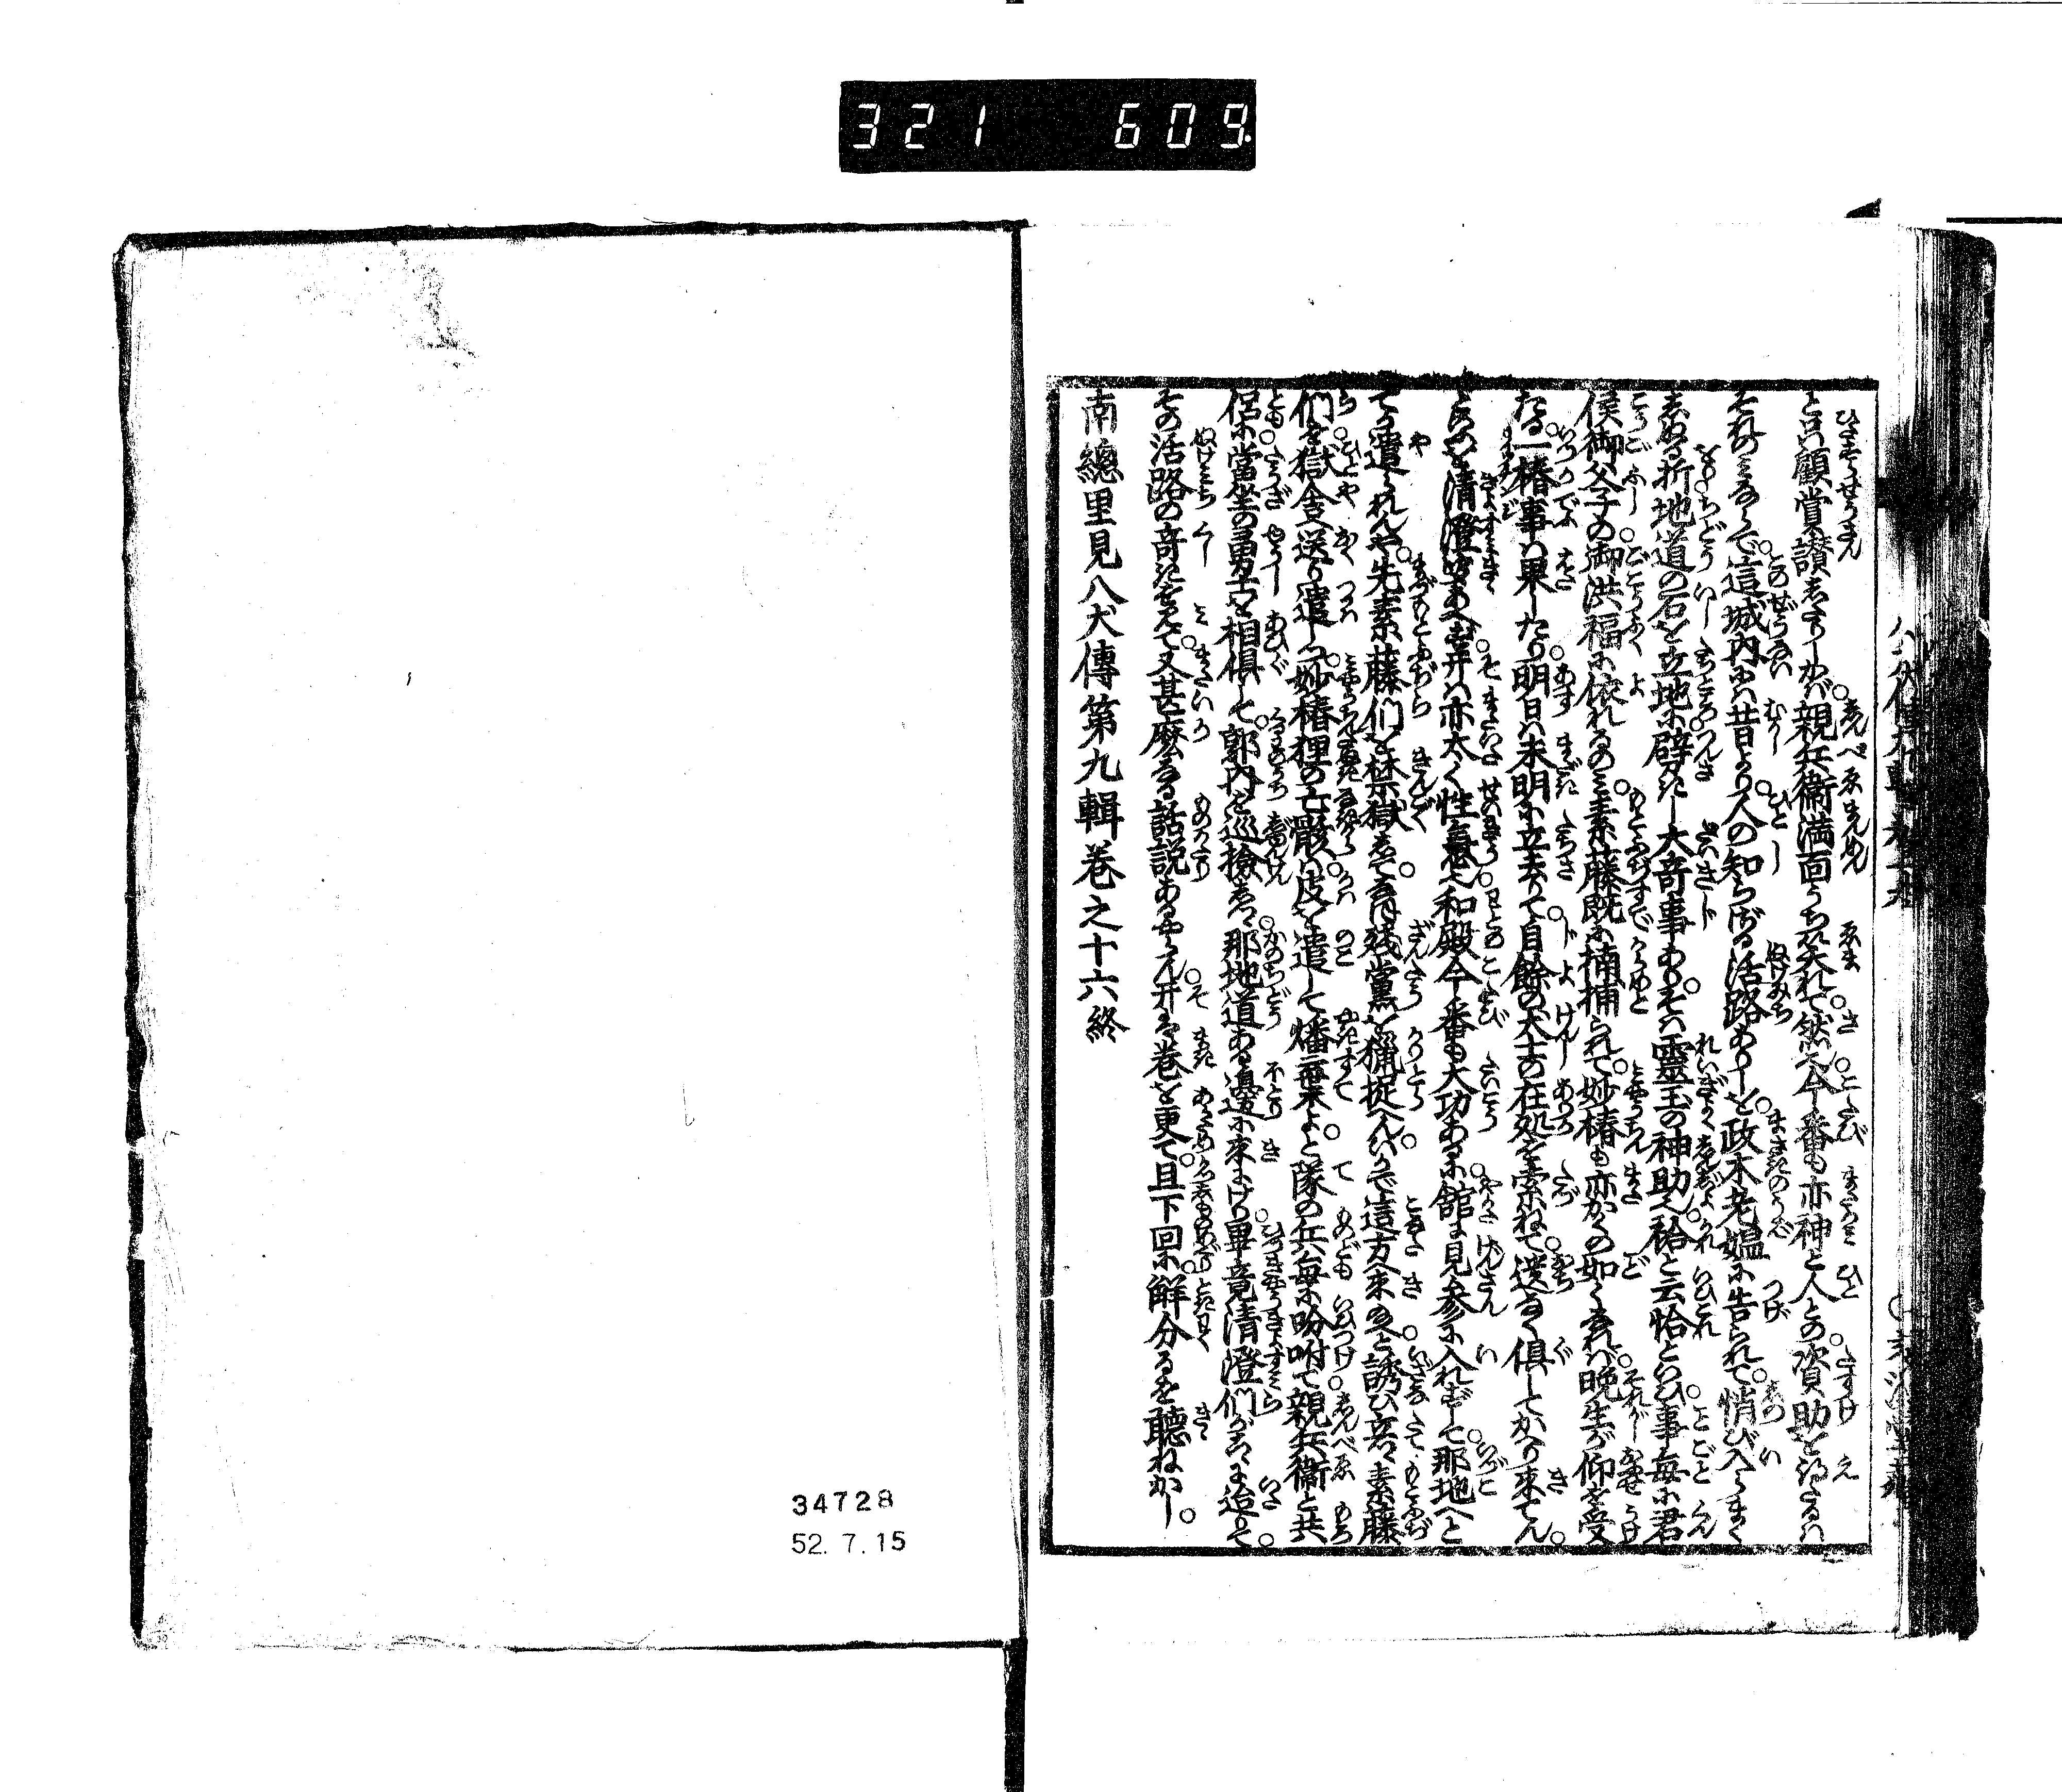 321 609
と只顧賞讃しよりしかバ親兵衛満面うち笑れて然ン今番も亦神と人との資助を得たるハ
それのミならで這城内にハ昔より人の知らざる活路ありしを政木老媼に告られて悄び入らまく
しぬる折地道の石を立地に劈きし大奇事ありそハ霊玉の神助也袷と云恰といひ事毎に君
侯御父子の御洪福に依れるのミ素藤既に擒捕られて妙椿も亦かくの如くなれバ晩生が仰を受
たる一椿事ハ果したり明日ハ未明に立去りて自餘の犬士の在処を索ねて送なく倶してかへり来てん
といふを清澄聞あへず开ハ亦太く性急也和殿今番も大功あるに館に見参に入れずして那地へと
てう遣られんや先素藤們を禁獄して残黨を猟捉んいかで這方へ来ませと誘ひ立て素藤
們を獄舎へ送り遣しつ妙椿狸の亡骸ハ皮を遣して燔棄よと隊の兵毎に吩咐て親兵衛と共
侶に當坐の勇士を相倶して郭内を巡撿しつ那地道ある邊に来にけり畢竟清澄們が這里に迨りて
その活路の奇を見て又甚麼なる話説あるやらん开ハ巻を更て且下回に解分るを聴ねかし
南總里見八犬傳第九輯巻之十六終
34728
52. 7. 15